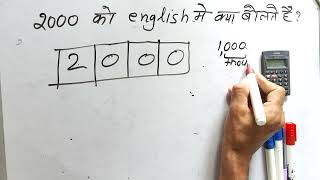 2000 को english मे क्या बोलते है?
2 0 0 0
1,000
thou